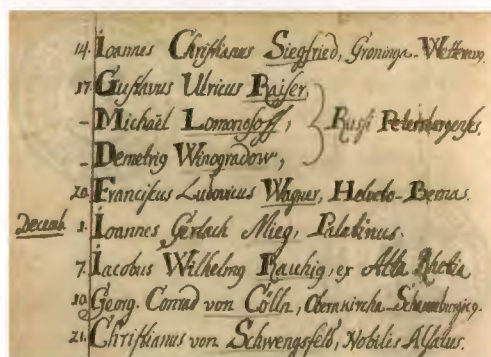 14. Ioannes Christianus Siegfried, Groninga-Wetterav.
17. Gustavus Ulricus Raiser,
– Michaël Lomonosoff, } Russi Petersburgenses.
– Demetrig Winogradow,
20. Franciscus Ludovicus Wagner, Helveto-Bernas.
Decemb. 1. Ioannes Gerlach Mieg, Palatinus.
7. Iacobus Wilhelmg Rauhig, ex Alta Rhetia
10. Georg. Conrad von Cölln,
21. Christianus von Schwengsfeld, Nobilis Alsatus.